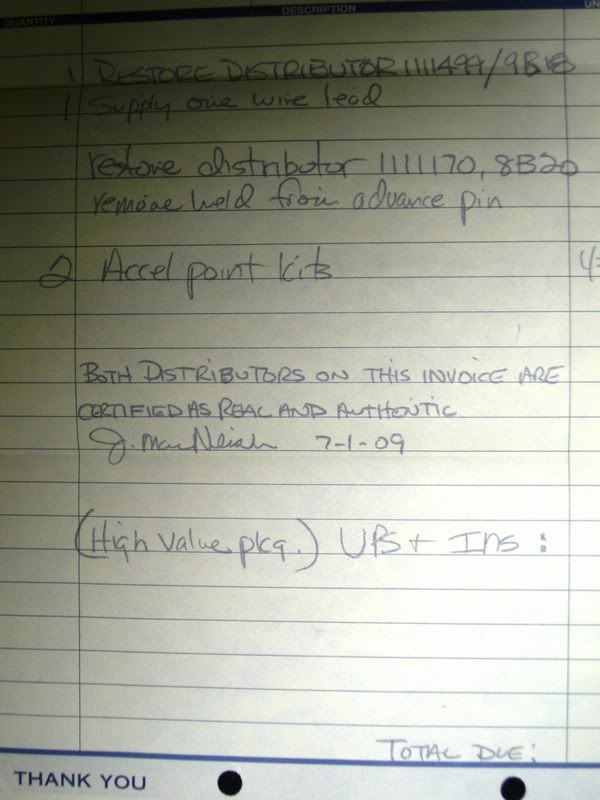 QUANTITY DESCRIPTION UN
1 RESTORE DISTRIBUTOR 1111499/9B18
1 Supply one wire lead
restore distributor 1111170, 8B20
remove weld from advance pin
2 Accel point kits 4
BOTH DISTRIBUTORS ON THIS INVOICE ARE
CERTIFIED AS REAL AND AUTHENTIC
J. MacNeish 7-1-09
(High Value pkg.) UPS + Ins :
TOTAL DUE:
THANK YOU